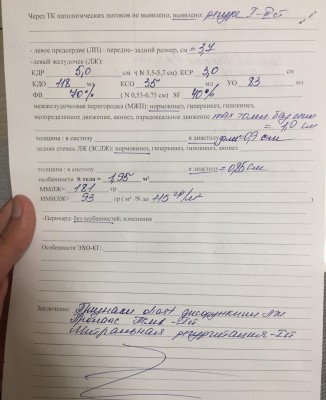 Через ТК патологических потоков не выявлено; выявлено: регург I-II ст
- левое предсердие (ЛП) : передне- задний размер, см = 3,7
-левый желудочек (ЛЖ):
КДР 5,0 см ( N 3,5-5,7 см) КСР 3,0 см
КДО 118 мл КСО 35 мл УО 83 мл
ФВ 70% ( N 0,53-0,75 см) SF 40%
межжелудочковая перегородка (МЖП): нормокинез, гиперкинез, гипокинез,
непропорциональное движение, акинез, парадоксальное движение max толщ.
= 1,0 см
толщина : в систолу в диастолу 0,9 см
задняя стенка ЛЖ (ЗСЛЖ): нормокинез, гиперкинез, гипокинез, акинез
толщина : в систолу в диастолу =0,85 см
особенности S тела = 1,95 м²
ММЛЖ= 181 гр
ИММЛЖ= 93 гр ( м² /N до 115 гр/м²
-Перикард: без особенностей; изменения
Особенности ЭХО-КГ:
Заключение: Признаки diast дисфункции ЛЖ
Пролапс ПМК - I ст
Митральная регургитация - I ст